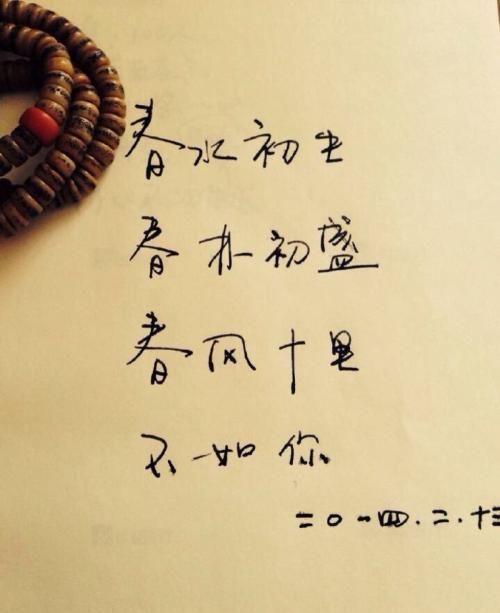 春水初生
春林初盛
春风十里
不如你
二〇一四.二.十三